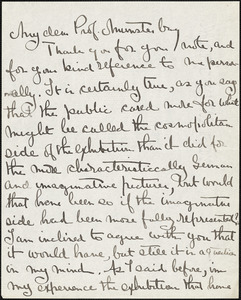 My dear Prof. Munsterberg
Thank you for your note, and
for your kind reference to me perso-
nally. It is certainly true, as you say
that the public cared more for what
might be called the cosmopolitan
side of the Exhibition than it did for
the more characteristically German
and imaginative pictures, but would
that have been so if the imaginative
side had been more fully represented?
I am inclined to agree with you that
it would have, but still it is a question
in my mind. As I said before, in
my experience the exhibition that have